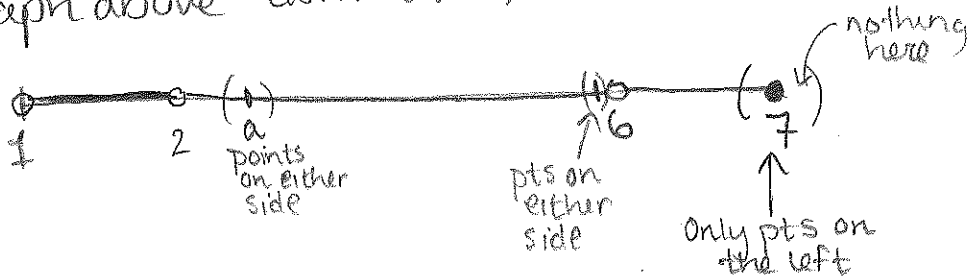 graph above
nothing
here
1
2
a
6
7
points
on either
side
pts on
either
side
Only pts on
the left